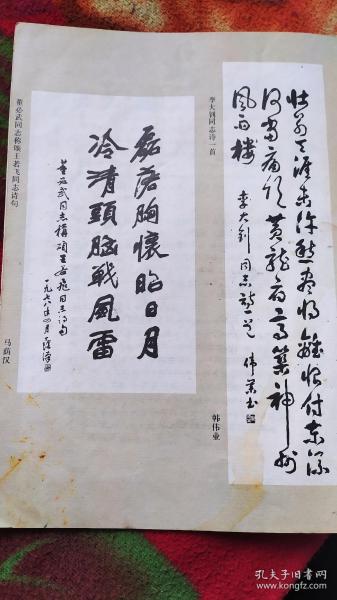 壮别天涯未许愁尽将離恨付东流
何当痛饮黄龍府高築神州
风雨楼 李大钊同志诗一首 伟业书
李大钊同志诗一首
韩伟业
磊落胸懷昭日月
冷清頭腦戰風雷
董必武同志稱頌王若飛同志诗句
一九七八年四月
董必武同志称颂王若飞同志诗句
马荫汉
孔夫子旧书网
kongfz.com